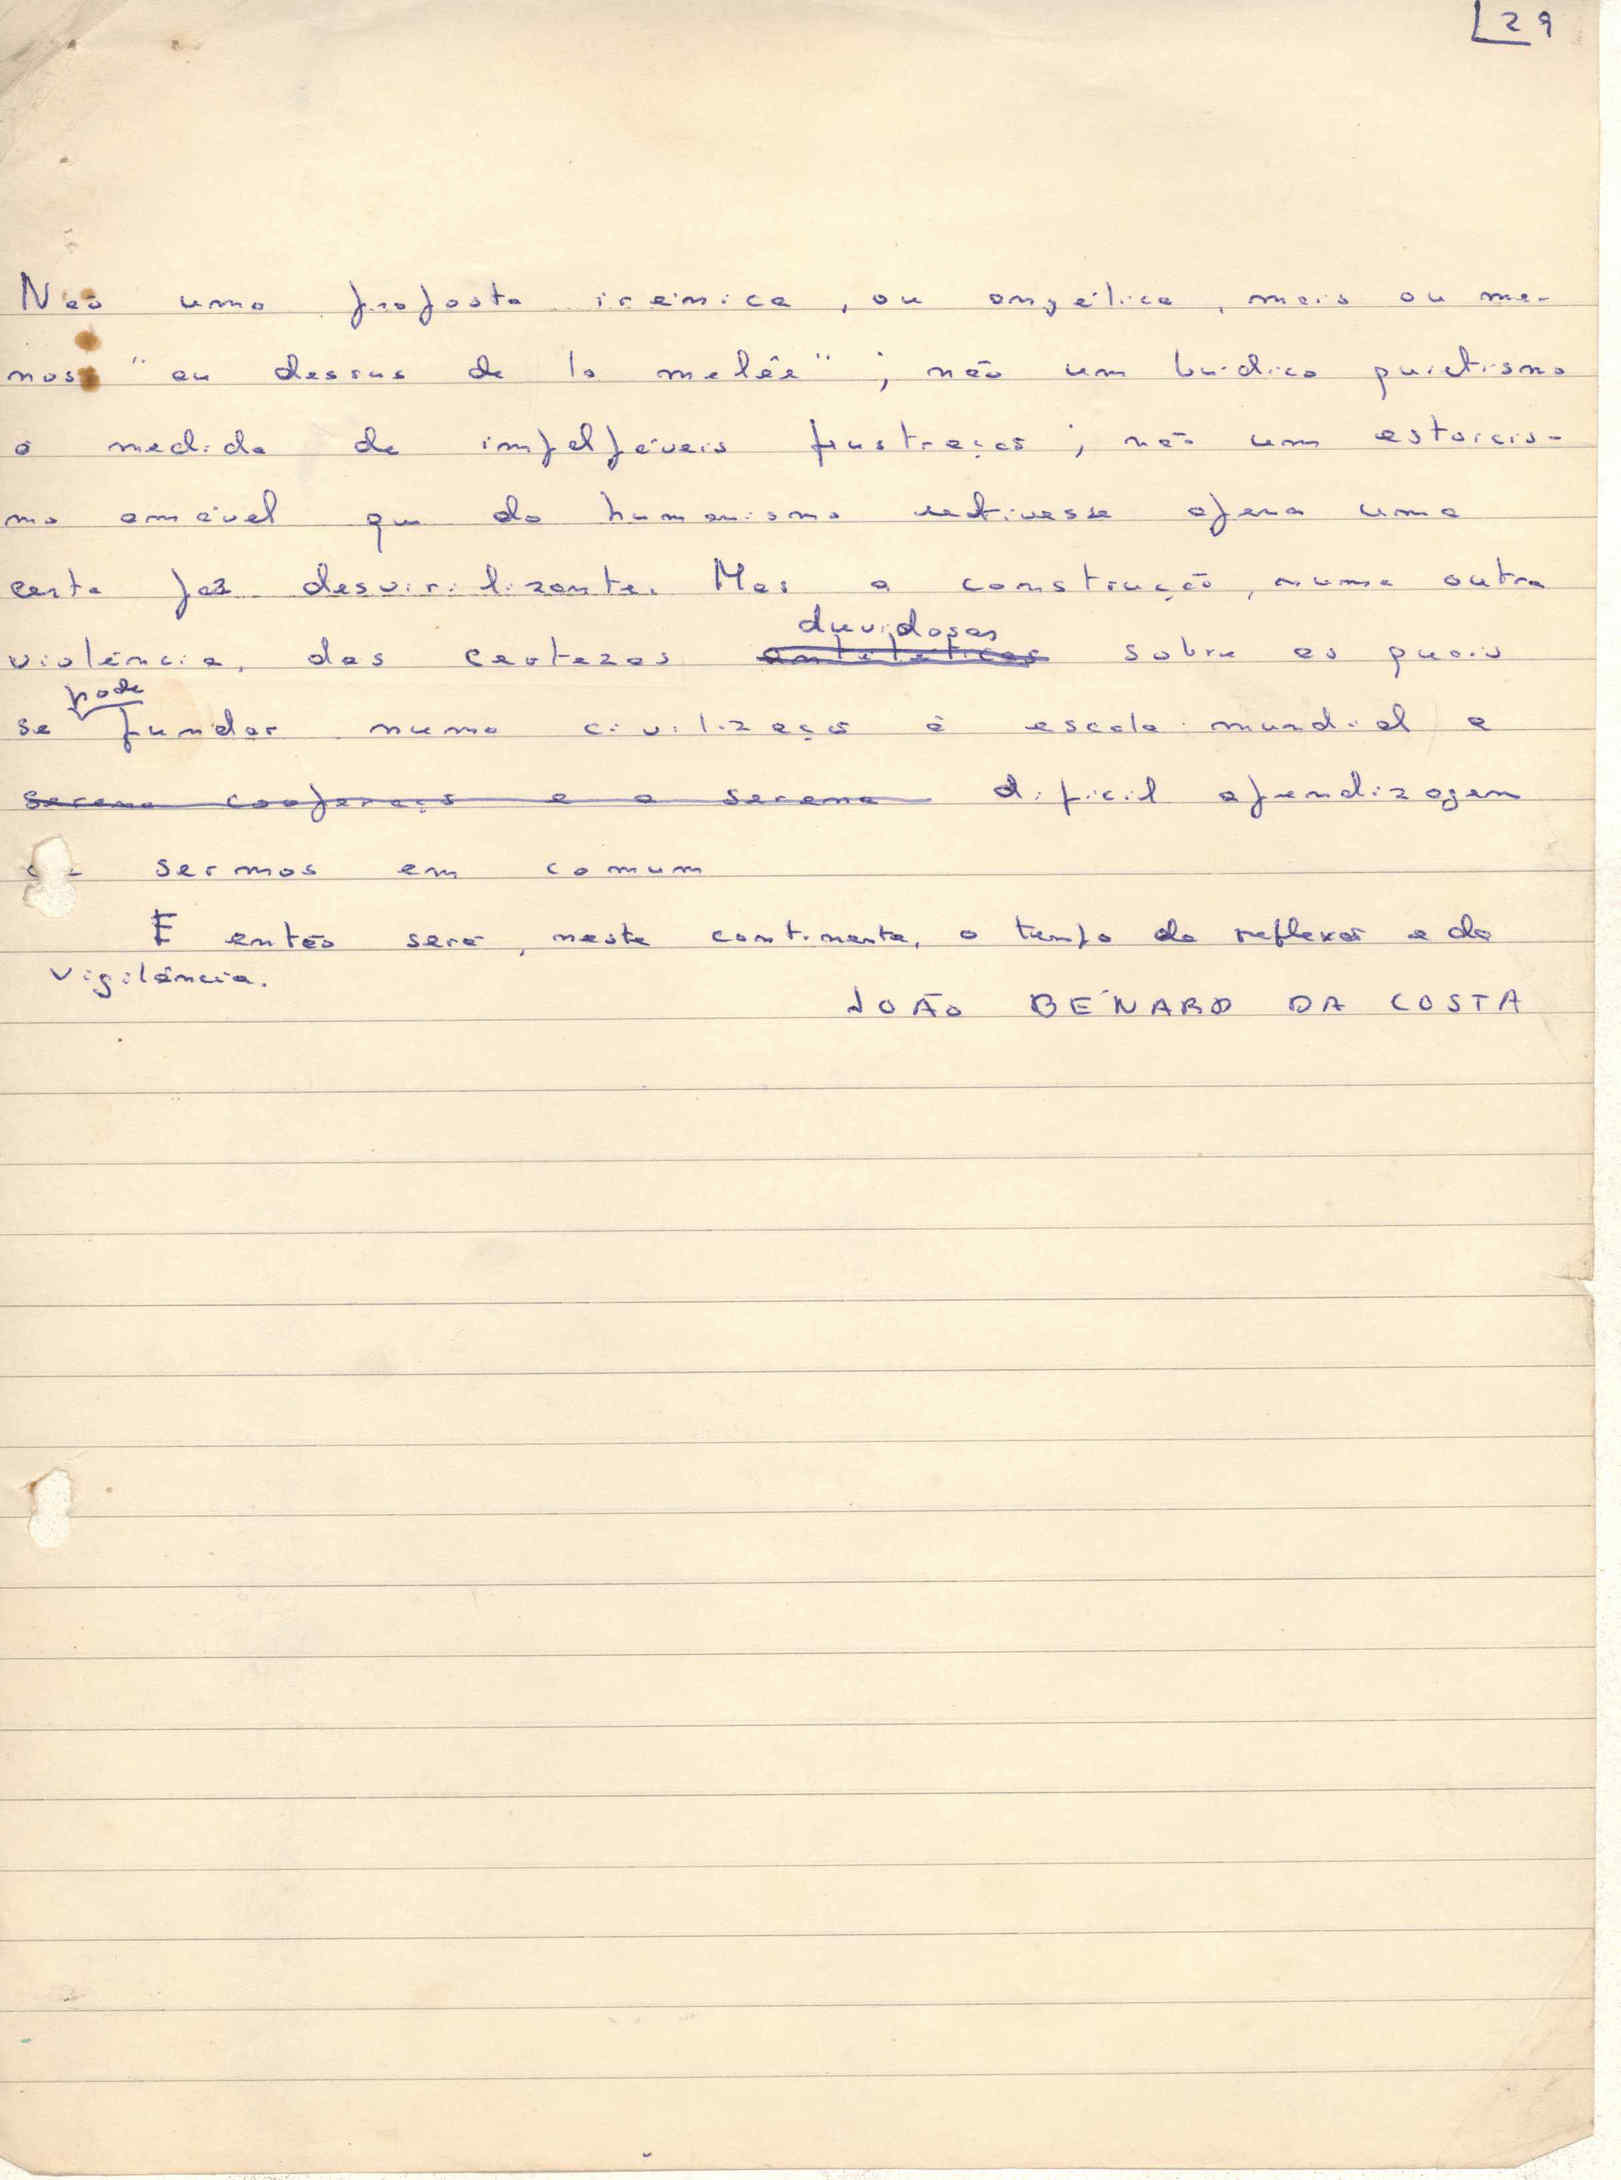 29
Não uma proposta irénica, ou angélica, mais ou me-
nos "au dessus de la melée"; não um búdico quietismo
à medida de impalpáveis frustrações; não um estoicis-
mo amável que do humanismo retivesse apenas uma
certa paz desvirilizante. Mas a construção, numa outra
duvidosas
violência, das certezas antitéticas sobre as quais
pode
se fundar numa civilização à escala mundial a
serena cooperação e a serena difícil aprendizagem
sermos em comum
E então será, neste continente, o tempo da reflexão e da
vigilância.
JOÃO BÉNARD DA COSTA